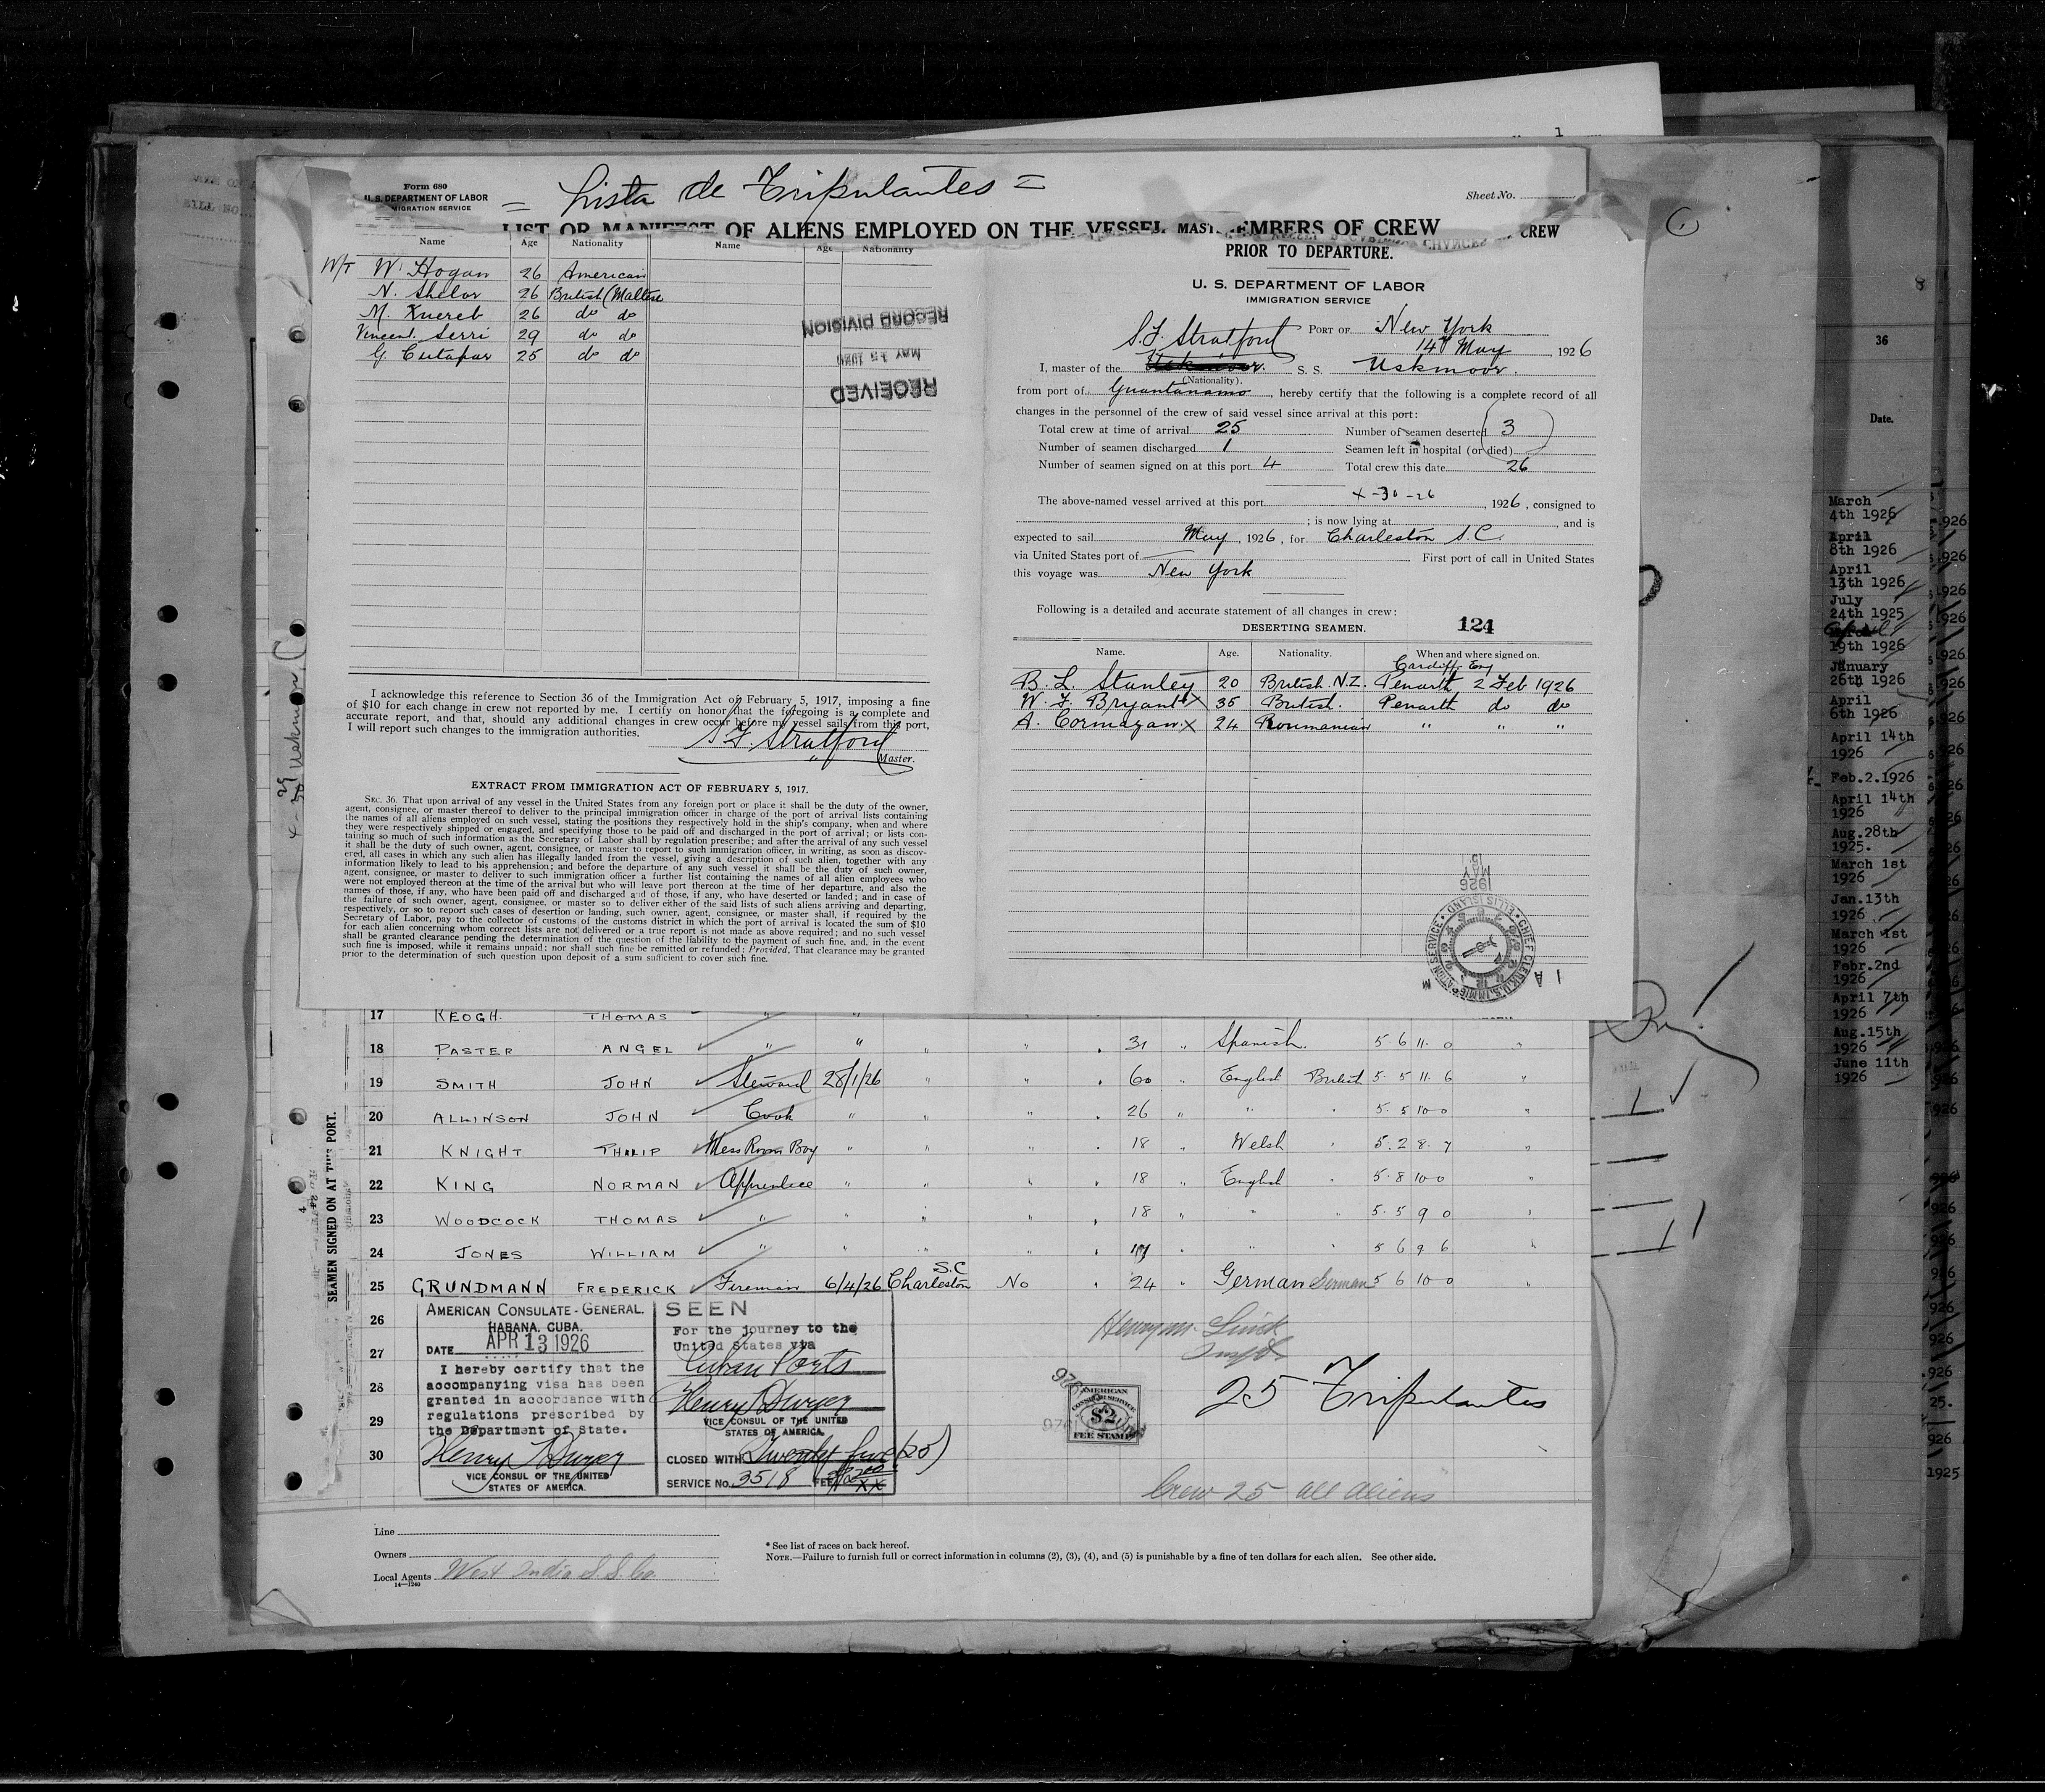 1
Form 680
U. S. DEPARTMENT OF LABOR
MIGRATION SERVICE
= Lista de Tripulantes =
Sheet No.
LIST OR MANIFEST OF ALIENS EMPLOYED ON THE VESSEL
MEMBERS OF CREW
CREW
Name Age Nationality Name Age Nationality
W/T W. Hogan 26 American
N. Shelor 26 British (Maltese
M. Xuereb 26 do do
Vincent. Serri 29 do do
G. Cutapar 25 do do
RECORD DIVISION
MAY 15 1926
RECEIVED
I acknowledge this reference to Section 36 of the Immigration Act of February 5, 1917, imposing a fine
of $10 for each change in crew not reported by me. I certify on honor that the foregoing is a complete and
accurate report, and that, should any additional changes in crew occur before my vessel sails from this port,
I will report such changes to the immigration authorities.
S. F. Stratford
Master.
EXTRACT FROM IMMIGRATION ACT OF FEBRUARY 5, 1917.
SEC. 36. That upon arrival of any vessel in the United States from any foreign port or place it shall be the duty of the owner,
agent, consignee, or master thereof to deliver to the principal immigration officer in charge of the port of arrival lists containing
the names of all aliens employed on such vessel, stating the positions they respectively hold in the ship's company, when and where
they were respectively shipped or engaged, and specifying those to be paid off and discharged in the port of arrival; or lists con-
taining so much of such information as the Secretary of Labor shall by regulation prescribe; and after the arrival of any such vessel
it shall be the duty of such owner, agent, consignee, or master to report to such immigration officer, in writing, as soon as discov-
ered, all cases in which any such alien has illegally landed from the vessel, giving a description of such alien, together with any
information likely to lead to his apprehension; and before the departure of any such vessel it shall be the duty of such owner,
agent, consignee, or master to deliver to such immigration officer a further list containing the names of all alien employees who
were not employed thereon at the time of the arrival but who will leave port thereon at the time of her departure, and also the
names of those, if any, who have been paid off and discharged and of those, if any, who have deserted or landed; and in case of
the failure of such owner, agent, consignee, or master so to deliver either of the said lists of such aliens arriving and departing,
respectively, or so to report such cases of desertion or landing, such owner, agent, consignee, or master shall, if required by the
Secretary of Labor, pay to the collector of customs of the customs district in which the port of arrival is located the sum of $10
for each alien concerning whom correct lists are not delivered or a true report is not made as above required; and no such vessel
shall be granted clearance pending the determination of the question of the liability to the payment of such fine, and, in the event
such fine is imposed, while it remains unpaid; nor shall such fine be remitted or refunded: Provided, That clearance may be granted
prior to the determination of such question upon deposit of a sum sufficient to cover such fine.
PRIOR TO DEPARTURE.
U. S. DEPARTMENT OF LABOR
IMMIGRATION SERVICE
PORT OF New York
S. F. Stratford 14th May, 1926
I, master of the S. S. Uskmoor.
(Nationality).
from port of Guantanamo, hereby certify that the following is a complete record of all
changes in the personnel of the crew of said vessel since arrival at this port:
Total crew at time of arrival 25 Number of seamen deserted 3
Number of seamen discharged 1 Seamen left in hospital (or died)
Number of seamen signed on at this port 4 Total crew this date 26
The above-named vessel arrived at this port 4-30-26, 1926, consigned to
; is now lying at, and is
expected to sail May, 1926, for Charleston S.C.
via United States port of First port of call in United States
this voyage was New York
Following is a detailed and accurate statement of all changes in crew:
DESERTING SEAMEN. 124
Name. Age. Nationality. When and where signed on.
Cardiff. Eng
B. L. Stanley 20 British. N.Z. Penarth 2 Feb 1926
W. F. Bryant X 35 British. Penarth do do
A. Cormazan. X 24 Roumanian " " "
1926
MAY
15
CHIEF CLERK, U. S. IMMIGRATION SERVICE
ELLIS ISLAND
SEAMEN SIGNED ON AT THIS PORT.
17 KEOGH. THOMAS " "
18 PASTER ANGEL " " " " 31 " Spanish. 5 6 11. 0 "
19 SMITH JOHN Steward 28/1/26 " " 60 " English British 5. 5 11. 6 "
20 ALLINSON JOHN Cook " " " 26 " " " 5. 5 10 0 "
21 KNIGHT PHILIP Mess Room Boy " " " 18 " Welsh " 5. 2 8. 7 "
22 KING NORMAN Apprentice " " " 18 " English " 5. 8 10 0 "
23 WOODCOCK THOMAS " " " " 18 " " " 5. 5 9 0 "
24 JONES WILLIAM " " " " " " " 5 6 9 6 "
25 GRUNDMANN FREDERICK Fireman 6/4/26 Charleston S.C No 24 " German German 5 6 10 0 "
26
27
28
29
30
AMERICAN CONSULATE-GENERAL.
HABANA, CUBA.
DATE APR 13 1926
I hereby certify that the
accompanying visa has been
granted in accordance with
regulations prescribed by
the Department of State.
VICE CONSUL OF THE UNITED
STATES OF AMERICA.
SEEN
For the journey to the
United States via
Cuban Ports
VICE CONSUL OF THE UNITED
STATES OF AMERICA.
CLOSED WITH Twenty five (25)
SERVICE No. 3518 FEE
AMERICAN
CONSULAR SERVICE
$2
FEE STAMP
25 Tripulantes
Crew 25 all aliens
Line
Owners
Local Agents West India S.S. Co
14—1240
* See list of races on back hereof.
NOTE.—Failure to furnish full or correct information in columns (2), (3), (4), and (5) is punishable by a fine of ten dollars for each alien. See other side.
8
36
Date.
March
4th 1926
April
8th 1926
April
13th 1926
July
24th 1925
19th 1926
January
26th 1926
April
6th 1926
April 14th
1926
Feb.2.1926
April 14th
1926
Aug.28th
1925.
March 1st
1926
Jan.13th
1926
March 1st
1926
Febr.2nd
1926
April 7th
1926
Aug.15th
1926
June 11th
1926